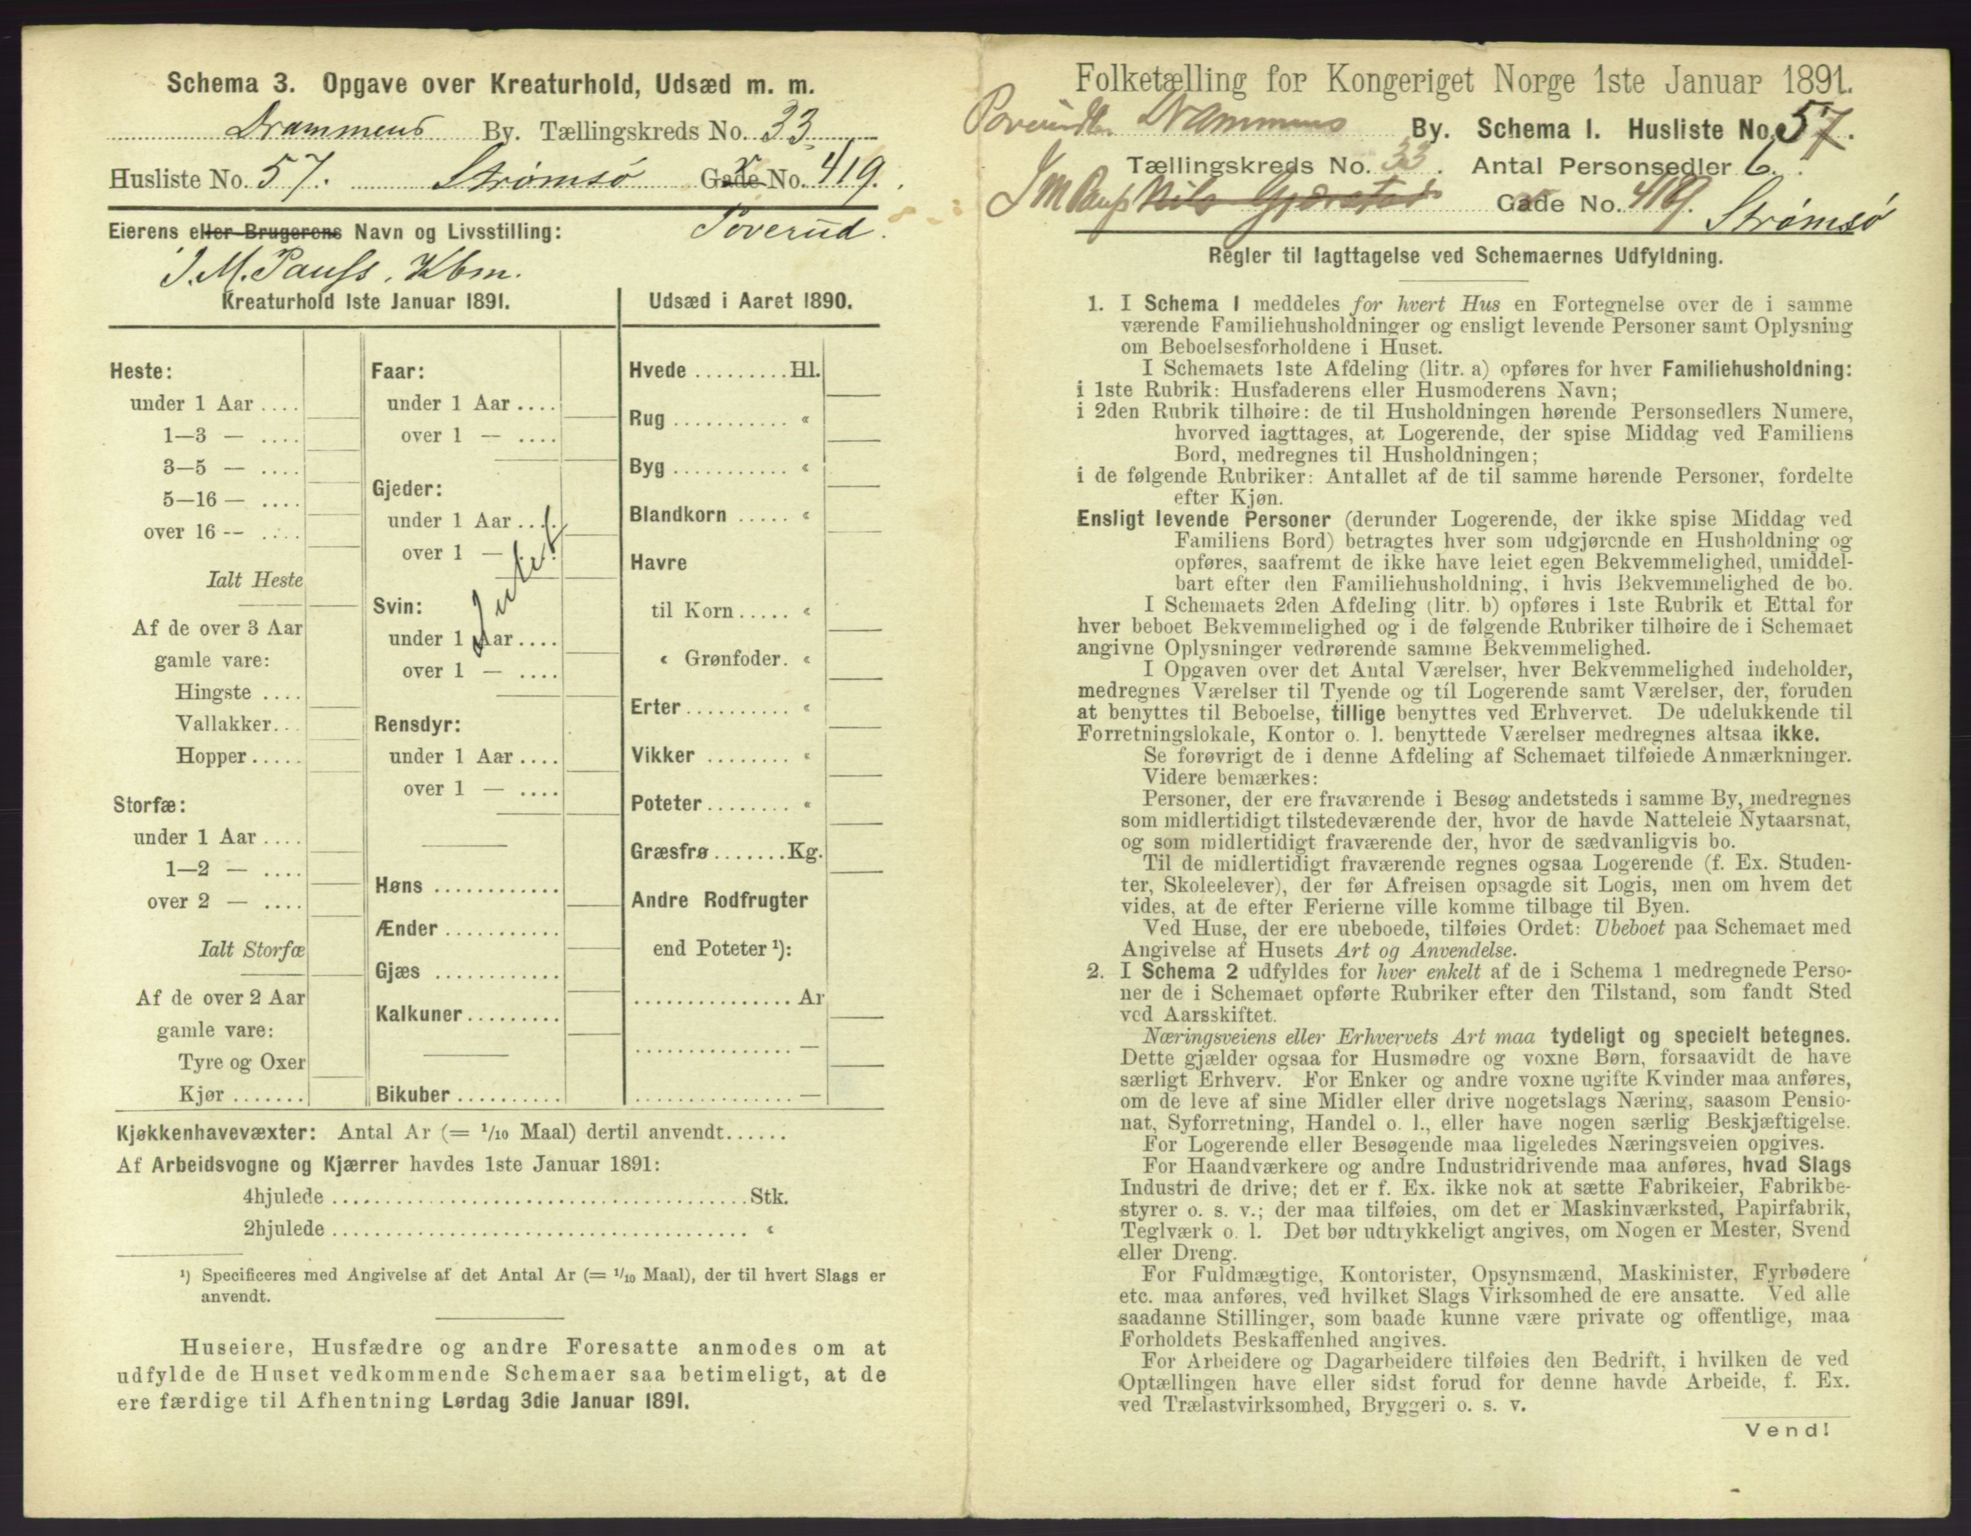 Schema 3. Opgave over Kreaturhold, Udsæd m. m.
Drammens By. Tællingskreds No. 33.
Husliste No. 57. Strømsø Gade No. 419.
Eierens eller Brugerens Navn og Livsstilling: Toverud.
J. M. Pauss, Kbm.
Kreaturhold 1ste Januar 1891.
Heste:
under 1 Aar ....
1—3 — ....
3—5 — ....
5—16 — ....
over 16 -- ....
Ialt Heste
Af de over 3 Aar
gamle vare:
Hingste ....
Vallakker...
Hopper.....
Storfæ:
under 1 Aar ....
1—2 — ....
over 2 — ....
Ialt Storfæ
Af de over 2 Aar
gamle vare:
Tyre og Oxer
Kjør .......
Faar:
under 1 Aar ....
over 1 — ....
Gjeder:
under 1 Aar ....
over 1 — ....
Intet.
Svin:
under 1 Aar ....
over 1 — ....
Rensdyr:
under 1 Aar ....
over 1 — ....
Høns ............
Ænder ...........
Gjæs ............
Kalkuner.........
Bikuber ..........
Udsæd i Aaret 1890.
Hvede .........Hl.
Rug ........... «
Byg ........... «
Blandkorn ..... «
Havre
til Korn ..... «
« Grønfoder. «
Erter.......... «
Vikker ........ «
Poteter........ «
Græsfrø .......Kg.
Andre Rodfrugter
end Poteter ¹):
............... Ar
............... —
............... —
Kjøkkenhavevæxter: Antal Ar (= 1/10 Maal) dertil anvendt......
Af Arbeidsvogne og Kjærrer havdes 1ste Januar 1891:
4hjulede ........................................Stk.
2hjulede ........................................ «
¹) Specificeres med Angivelse af det Antal Ar (= 1/10 Maal), der til hvert Slags er
anvendt.
Huseiere, Husfædre og andre Foresatte anmodes om at
udfylde de Huset vedkommende Schemaer saa betimeligt, at de
ere færdige til Afhentning Lørdag 3die Januar 1891.
Folketælling for Kongeriget Norge 1ste Januar 1891.
Drammens By. Schema 1. Husliste No. 57.
Tællingskreds No. 33. Antal Personsedler 6.
J M Pauss Nils Gjærstad Gade No. 419. Strømsø
Regler til Iagttagelse ved Schemaernes Udfyldning.
1. I Schema 1 meddeles for hvert Hus en Fortegnelse over de i samme
værende Familiehusholdninger og ensligt levende Personer samt Oplysning
om Beboelsesforholdene i Huset.
I Schemaets 1ste Afdeling (litr. a) opføres for hver Familiehusholdning:
i 1ste Rubrik: Husfaderens eller Husmoderens Navn;
i 2den Rubrik tilhøire: de til Husholdningen hørende Personsedlers Numere,
hvorved iagttages, at Logerende, der spise Middag ved Familiens
Bord, medregnes til Husholdningen;
i de følgende Rubriker: Antallet af de til samme hørende Personer, fordelte
efter Kjøn.
Ensligt levende Personer (derunder Logerende, der ikke spise Middag ved
Familiens Bord) betragtes hver som udgjørende en Husholdning og
opføres, saafremt de ikke have leiet egen Bekvemmelighed, umiddel-
bart efter den Familiehusholdning, i hvis Bekvemmelighed de bo.
I Schemaets 2den Afdeling (litr. b) opføres i 1ste Rubrik et Ettal for
hver beboet Bekvemmelighed og i de følgende Rubriker tilhøire de i Schemaet
angivne Oplysninger vedrørende samme Bekvemmelighed.
I Opgaven over det Antal Værelser, hver Bekvemmelighed indeholder,
medregnes Værelser til Tyende og til Logerende samt Værelser, der, foruden
at benyttes til Beboelse, tillige benyttes ved Erhvervet. De udelukkende til
Forretningslokale, Kontor o. l. benyttede Værelser medregnes altsaa ikke.
Se forøvrigt de i denne Afdeling af Schemaet tilføiede Anmærkninger.
Videre bemærkes:
Personer, der ere fraværende i Besøg andetsteds i samme By, medregnes
som midlertidigt tilstedeværende der, hvor de havde Natteleie Nytaarsnat,
og som midlertidigt fraværende der, hvor de sædvanligvis bo.
Til de midlertidigt fraværende regnes ogsaa Logerende (f. Ex. Studen-
ter, Skoleelever), der før Afreisen opsagde sit Logis, men om hvem det
vides, at de efter Ferierne ville komme tilbage til Byen.
Ved Huse, der ere ubeboede, tilføies Ordet: Ubeboet paa Schemaet med
Angivelse af Husets Art og Anvendelse.
2. I Schema 2 udfyldes for hver enkelt af de i Schema 1 medregnede Perso-
ner de i Schemaet opførte Rubriker efter den Tilstand, som fandt Sted
ved Aarsskiftet.
Næringsveiens eller Erhvervets Art maa tydeligt og specielt betegnes.
Dette gjælder ogsaa for Husmødre og voxne Børn, forsaavidt de have
særligt Erhverv. For Enker og andre voxne ugifte Kvinder maa anføres,
om de leve af sine Midler eller drive nogetslags Næring, saasom Pensio-
nat, Syforretning, Handel o. l., eller have nogen særlig Beskjæftigelse.
For Logerende eller Besøgende maa ligeledes Næringsveien opgives.
For Haandværkere og andre Industridrivende maa anføres, hvad Slags
Industri de drive; det er f. Ex. ikke nok at sætte Fabrikeier, Fabrikbe-
styrer o. s. v.; der maa tilføies, om det er Maskinværksted, Papirfabrik,
Teglværk o. l. Det bør udtrykkeligt angives, om Nogen er Mester, Svend
eller Dreng.
For Fuldmægtige, Kontorister, Opsynsmænd, Maskinister, Fyrbødere
etc. maa anføres, ved hvilket Slags Virksomhed de ere ansatte. Ved alle
saadanne Stillinger, som baade kunne være private og offentlige, maa
Forholdets Beskaffenhed angives.
For Arbeidere og Dagarbeidere tilføies den Bedrift, i hvilken de ved
Optællingen have eller sidst forud for denne havde Arbeide, f. Ex.
ved Trælastvirksomhed, Bryggeri o. s. v.
Vend!